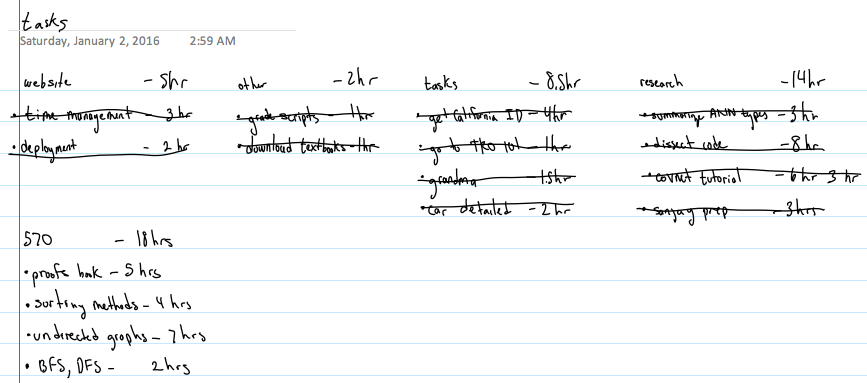 tasks
Saturday, January 2, 2016 2:59 AM
website - 5hr
• time management - 3 hr
• deployment - 2 hr
other - 2hr
• grade scripts - 1hr
• download textbooks - 1hr
tasks - 8.5hr
• get California ID - 4hr
• go to TKO 101 - 1hr
• grandma - 1.5hr
• car detailed - 2 hr
research - 14hr
• summarize ANN types - 3 hr
• dissect code - 8hr
• covnet tutorial - 6 hr 3 hr
• prep - 3hrs
570 - 18hrs
• proofs book - 5 hrs
• sorting methods - 4 hrs
• undirected graphs - 7 hrs
• BFS, DFS - 2hrs